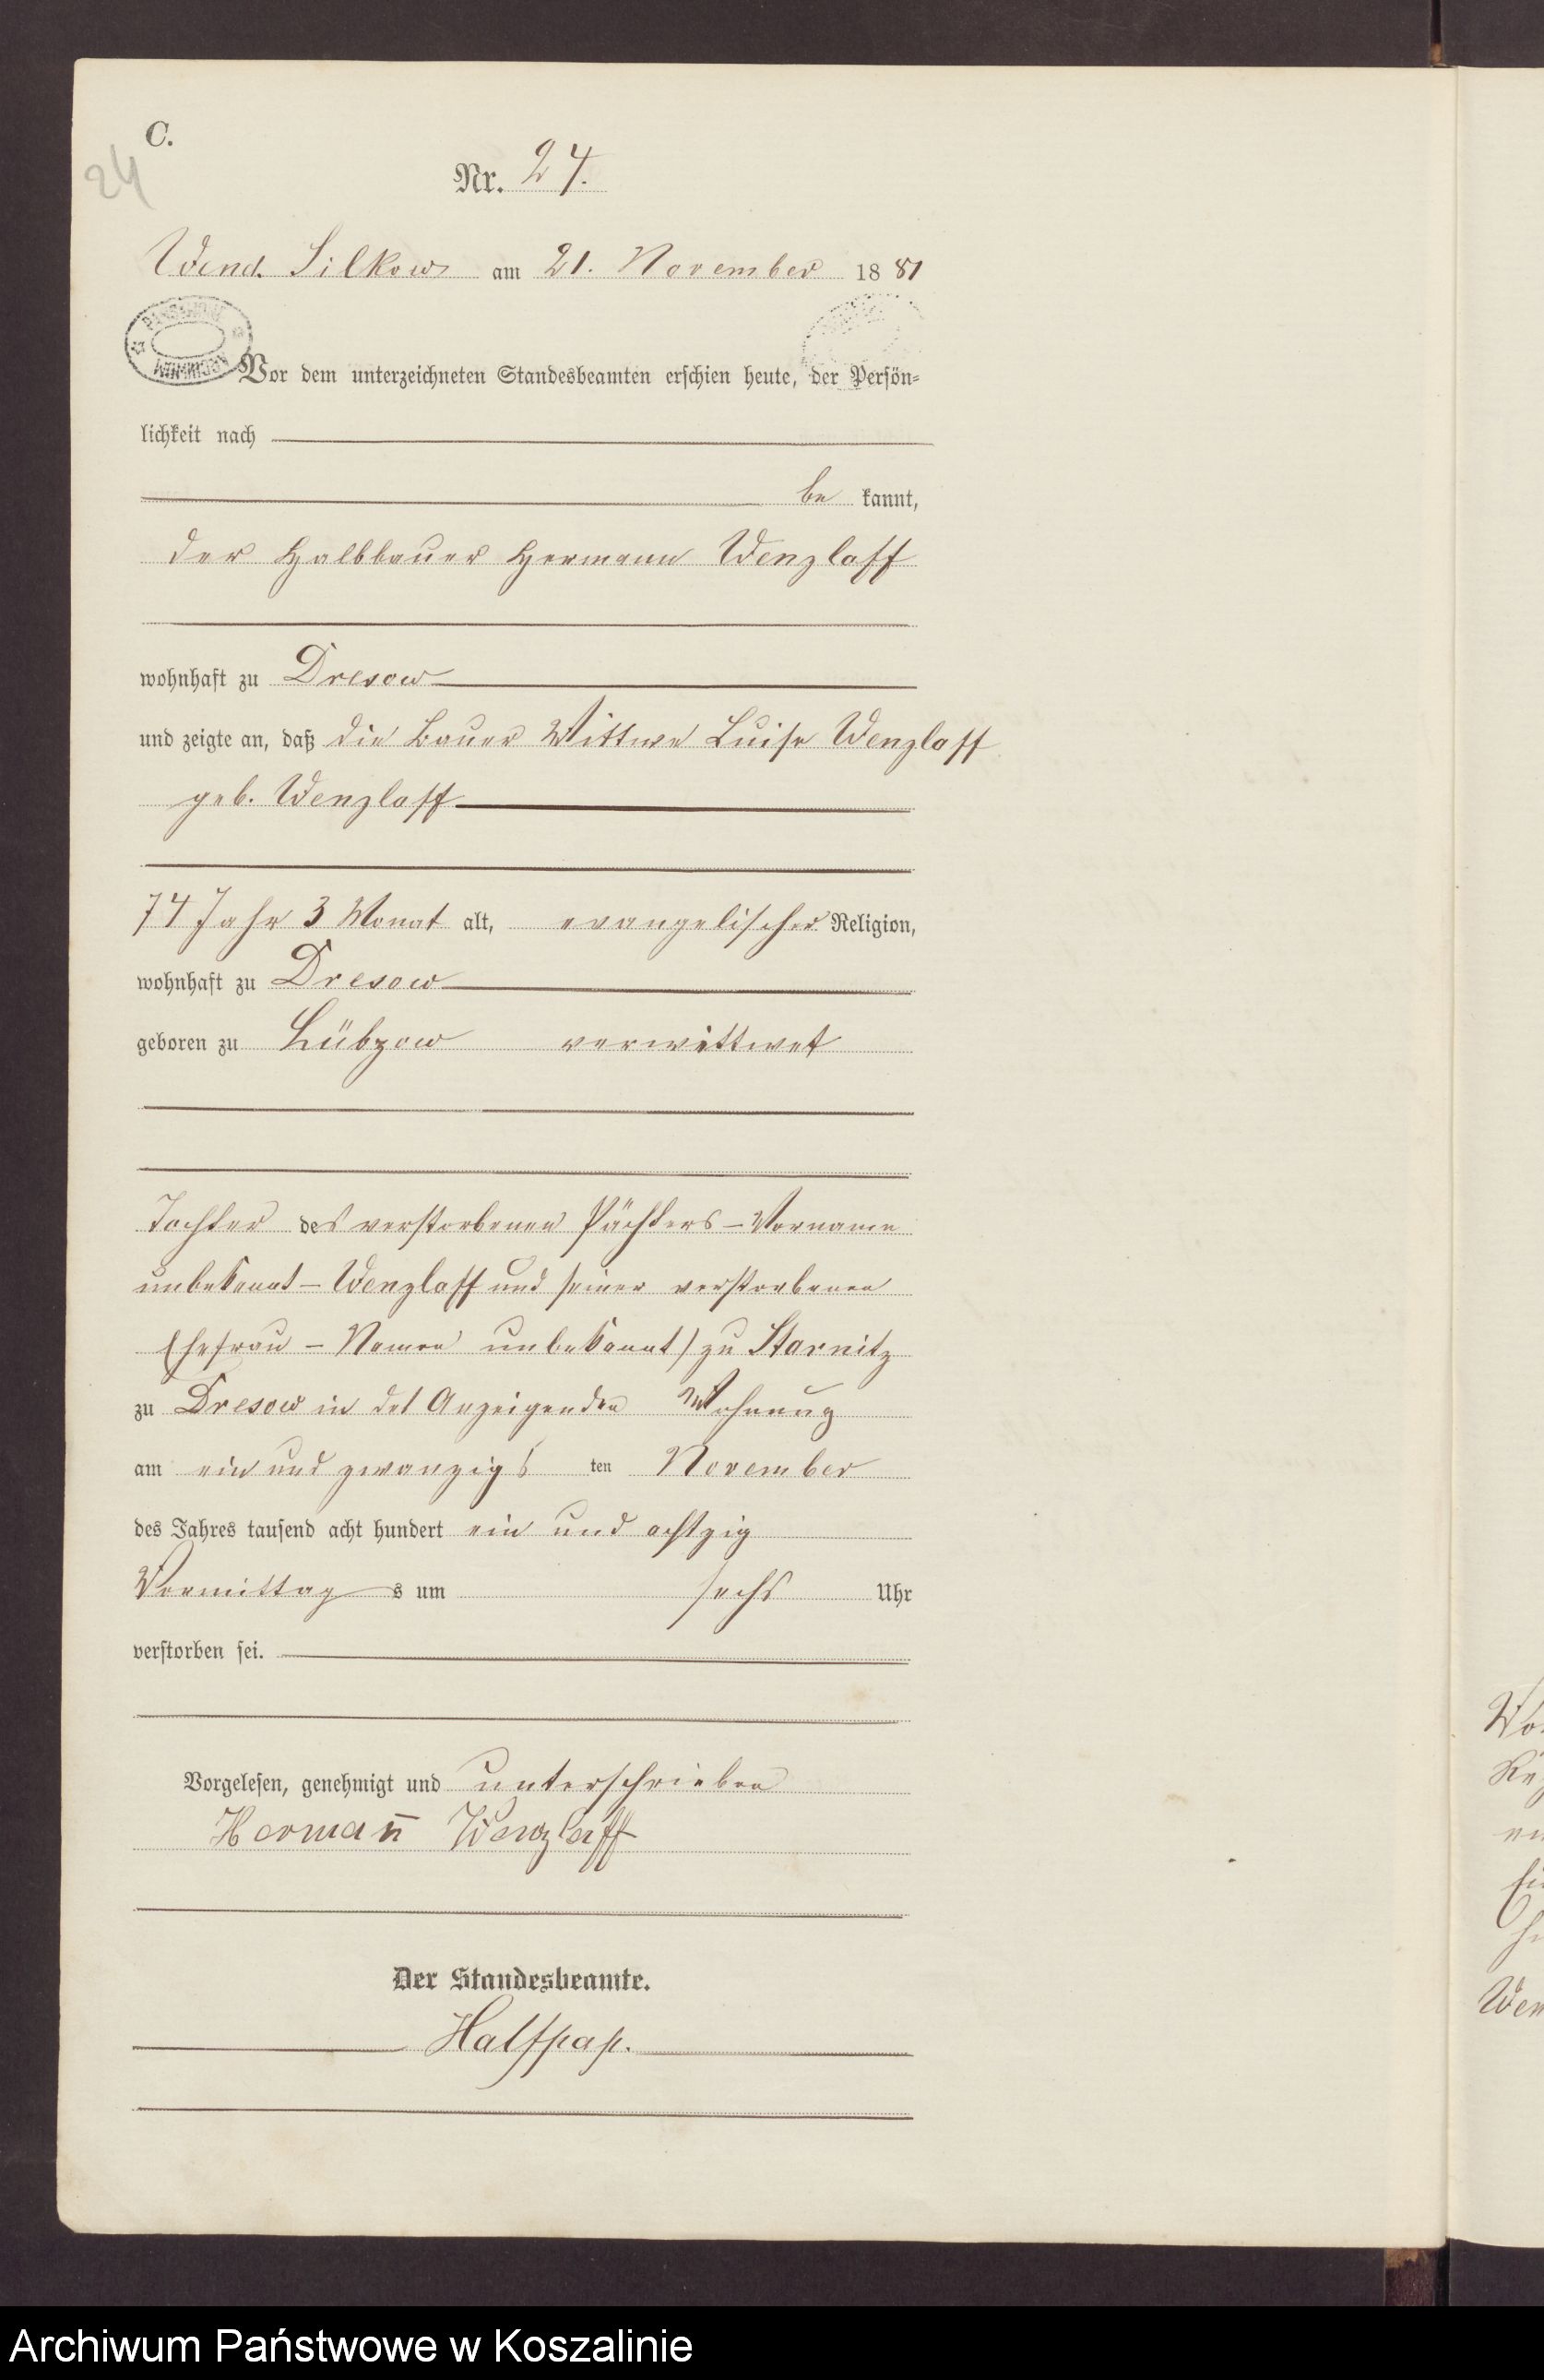 C.
24
Nr. 24.
Wend. Silkow am 21. November 1881
PAŃSTWOWE ARCHIWUM
Vor dem unterzeichneten Standesbeamten erschien heute, der Persön-
lichkeit nach
be kannt,
der Halbbauer Hermann Wenzlaff
wohnhaft zu Dresow
und zeigte an, daß die Bauer Wittwe Luise Wenzlaff
geb. Wenzlaff
74 Jahr 3 Monat alt, evangelischer Religion,
wohnhaft zu Dresow
geboren zu Lübzow verwittwet
Tochter des verstorbenen Pächters - Vorname
unbekannt - Wenzlaff und seiner verstorbenen
Ehefrau - Namen unbekannt) zu Starnitz
zu Dresow in des Anzeigenden Wohnung
am ein und zwanzigs ten November
des Jahres tausend acht hundert ein und achtzig
Vormittag s um sechs Uhr
verstorben sei.
Vorgelesen, genehmigt und unterschrieben
Herman̄ Wenzlaff
Der Standesbeamte.
Halfpap.
Archiwum Państwowe w Koszalinie